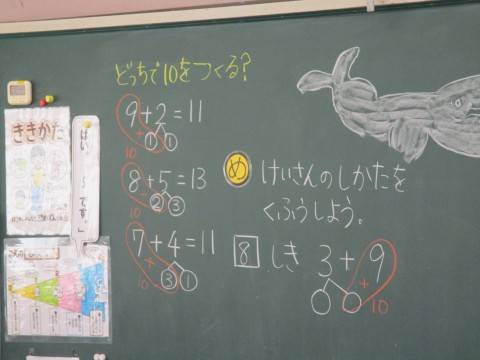 どっちで10をつくる?
9+2=11
① ①
10
8+5=13
② ③
10
7+4=11
③ ①
10
め けいさんのしかたを
くふうしよう。
8 しき 3+9
10
ききかた
はい、~です。」